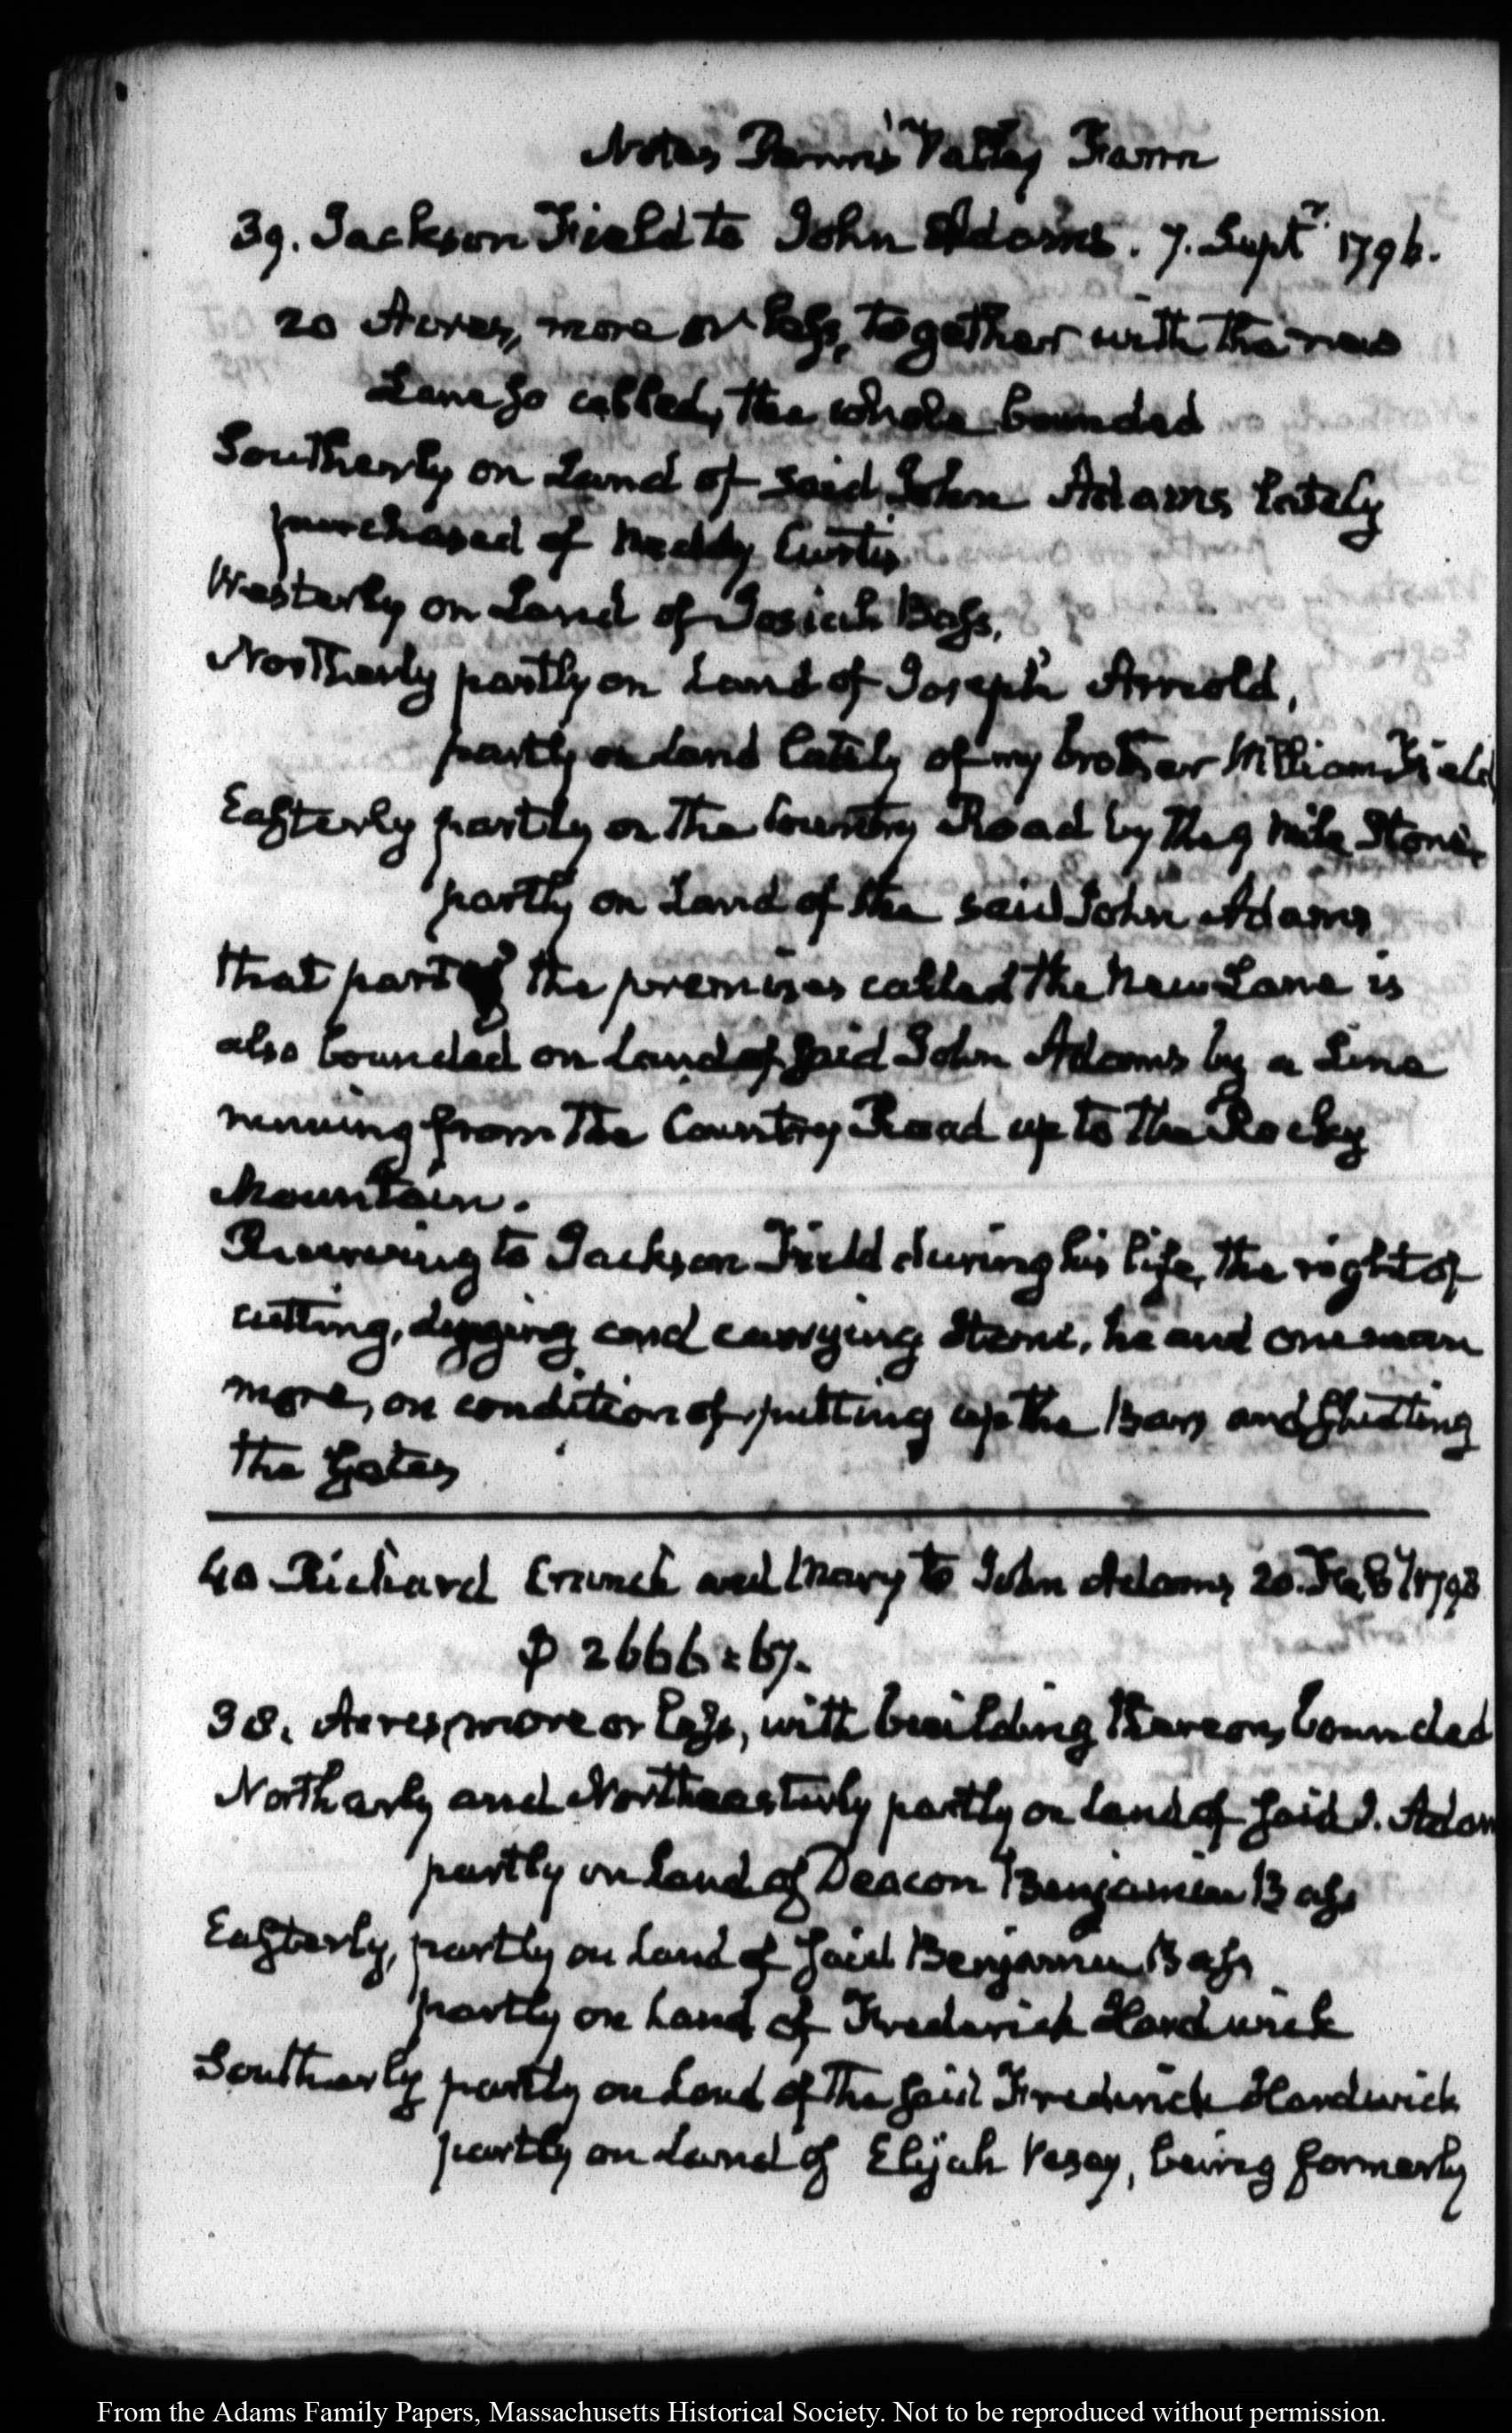 Notes Penns' Valley Farm
39. Jackson Field to John Adams. 7. Septr. 1796.
20 Acres, more or less, together with the new
Lane so called, the whole bounded
Southerly on Land of said John Adams lately
purchased of Neddy Curtis.
Westerly on Land of Josiah Bass,
Northerly partly on Land of Joseph Arnold,
partly on Land lately of my brother William Field
Easterly partly on the Country Road by the 9 mile Stone,
partly on Land of the said John Adams
that part of the premises called the New Lane is
also bounded on Land of said John Adams by a Line
running from the Country Road up to the Rocky
Mountain.
Reserving to Jackson Field during his life, the right of
cutting, digging and carrying Stone, he and one man
more, on condition of putting up the Bars and shutting
the Gates
40 Richard Cranch and Mary to John Adams 20. Feby 1798
$ 2666:67.
38. Acres, more or less, with building thereon, bounded
Northerly and Northeasterly partly on Land of said J. Adam
partly on Land of Deacon Benjamin Bass
Easterly, partly on Land of said Benjamin Bass
partly on Land of Frederick Hardwick
Southerly partly on Land of the said Frederick Hardwick
partly on Land of Elijah Vesey, being formerly
From the Adams Family Papers, Massachusetts Historical Society. Not to be reproduced without permission.